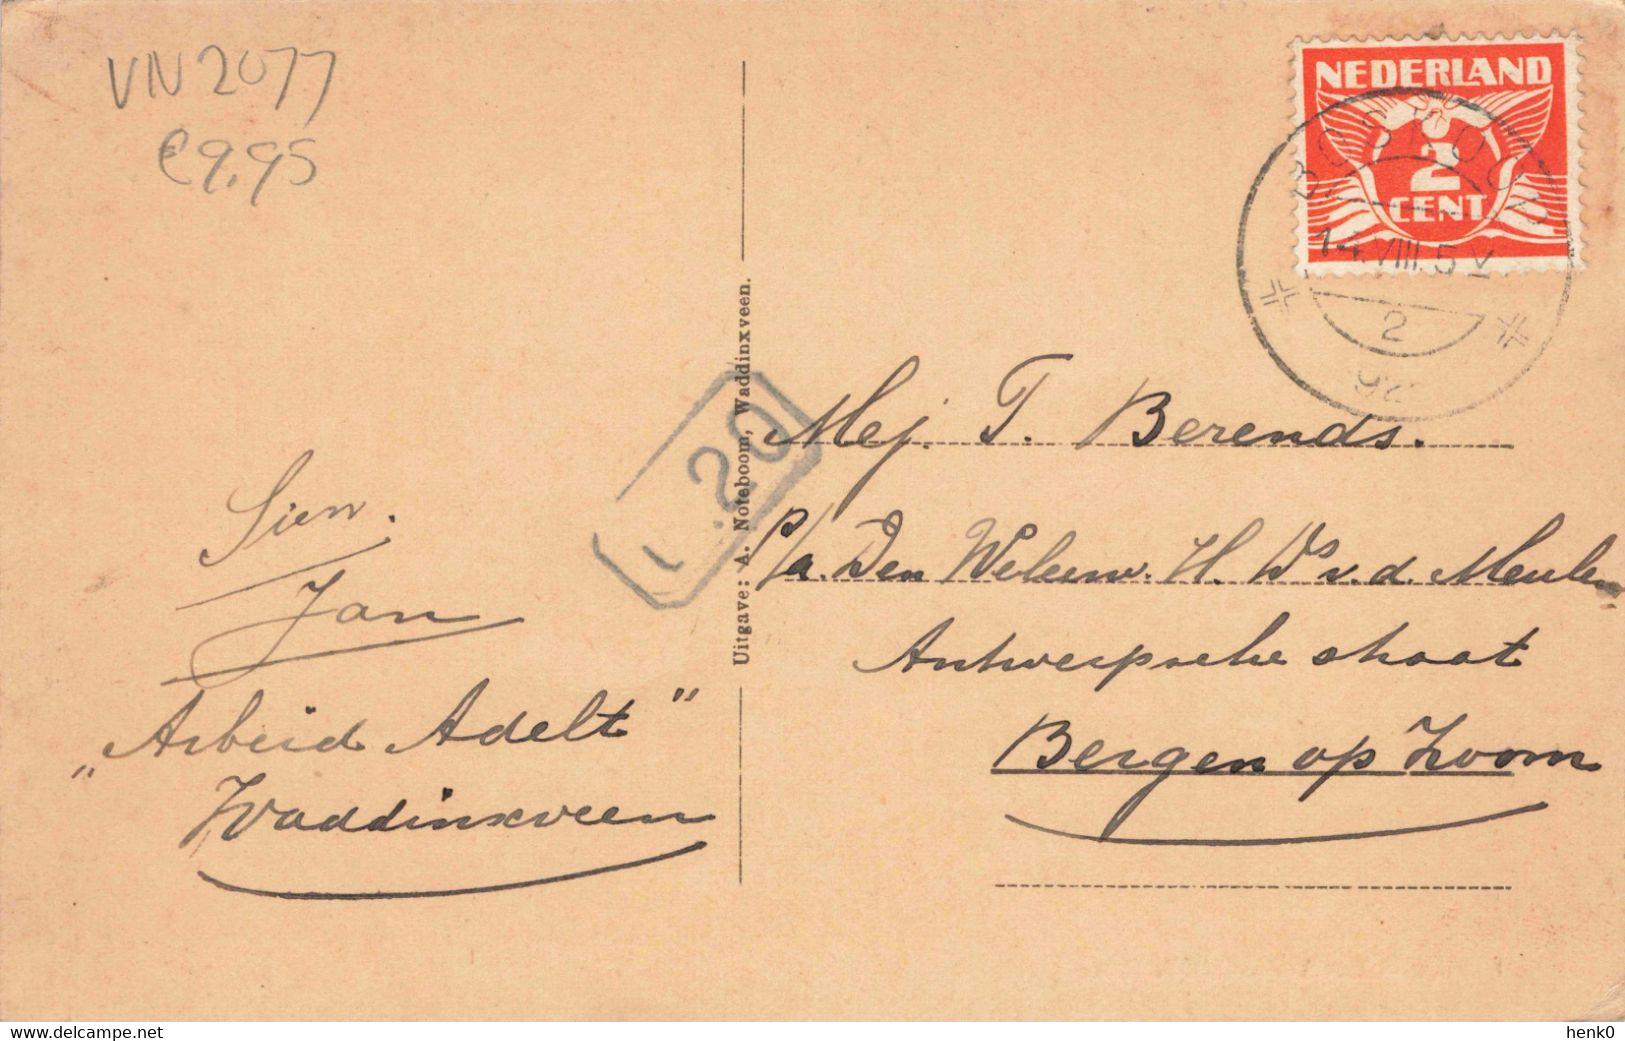 VN2077
€9,95
NEDERLAND
2
CENT
BOSKOOP
14.VIII.5 V
2
Uitgave: A. Noteboom, Waddinxveen.
1.20
Mej. T. Berends.
P/a. Den Weleerw. H. Ds v. d. Meulen
Antwerpsche straat
Bergen op Zoom
Sien.
Jan
„Arbeid Adelt"
Waddinxveen
delcampe.net
henk0